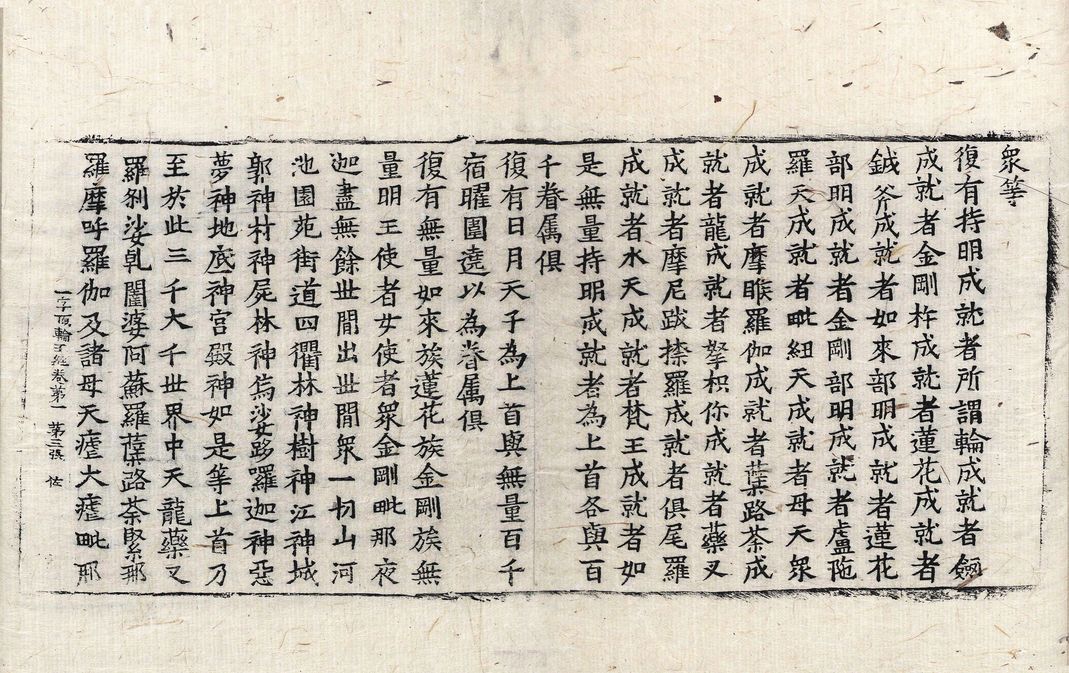 衆等
復有持明成就者所謂輪成就者劒
成就者金剛杵成就者蓮花成就者
鉞斧成就者如來部明成就者蓮花
部明成就者金剛部明成就者盧陁
羅天成就者毗紐天成就者母天衆
成就者摩睺羅伽成就者蘖路荼成
就者龍成就者拏枳你成就者藥叉
成就者摩尼跋捺羅成就者俱尾羅
成就者水天成就者梵王成就者如
是無量持明成就者為上首各與一百
千眷属俱
復有日月天子為上首與無量百千
宿曜圍遶以為眷属俱
復有無量如來族蓮花族金剛族無
量明王使者女使者衆金剛毗那夜
迦盡無餘丗閒出丗閒衆一切山河
池園苑街道四衢林神樹神江神城
郭神村神屍林神烏娑跢囉迦神惡
夢神地底神宫殿神如是等上首乃
至於此三千大千丗界中天龍藥叉
羅刹娑乹闥婆阿蘇羅蘖路荼緊那
羅摩呼羅伽及諸母天瘧大瘧毗那
一字頂輪王經卷第一 第三張 佐